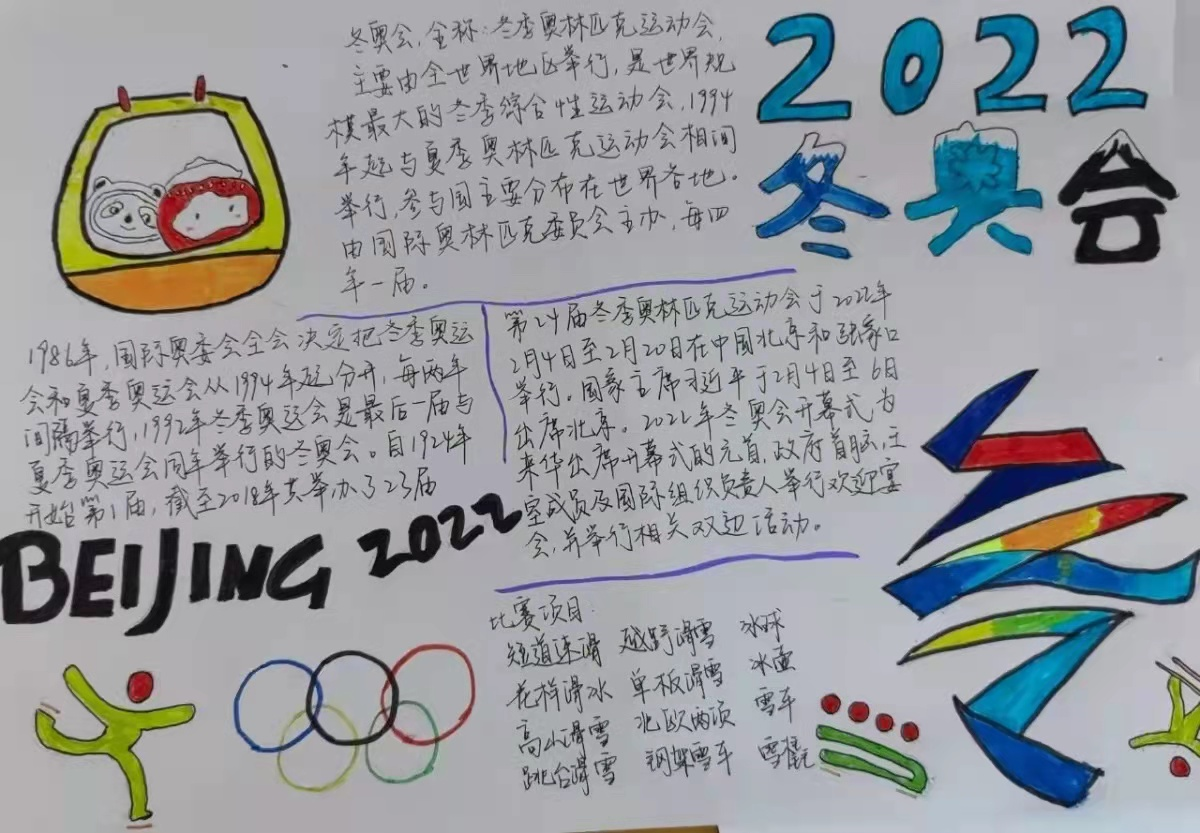 冬奥会,全称:冬季奥林匹克运动会,
主要由全世界地区举行,是世界规
模最大的冬季综合性运动会,1994
年起与夏季奥林匹克运动会相间
举行,参与国主要分布在世界各地。
由国际奥林匹克委员会主办,每四
年一届。
2022
冬奥会
1986年,国际奥委会全会决定把冬季奥运
会和夏季奥运会从1994年起分开,每两年
间隔举行,1992年冬季奥运会是最后一届与
夏季奥运会同年举行的冬奥会。自1924年
开始第1届,截至2018年共举办了23届
第24届冬季奥林匹克运动会于2022年
2月4日至2月20日在中国北京和张家口
举行。国家主席习近平于2月4日至6日
出席北京。2022年冬奥会开幕式为
来华出席开幕式的元首,政府首脑,王
室成员及国际组织负责人举行欢迎宴
会,并举行相关双边活动。
BEIJING 2022
比赛项目:
短道速滑 越野滑雪 冰球
花样滑冰 单板滑雪 冰壶
高山滑雪 北欧两项 雪车
跳台滑雪 钢架雪车 雪橇